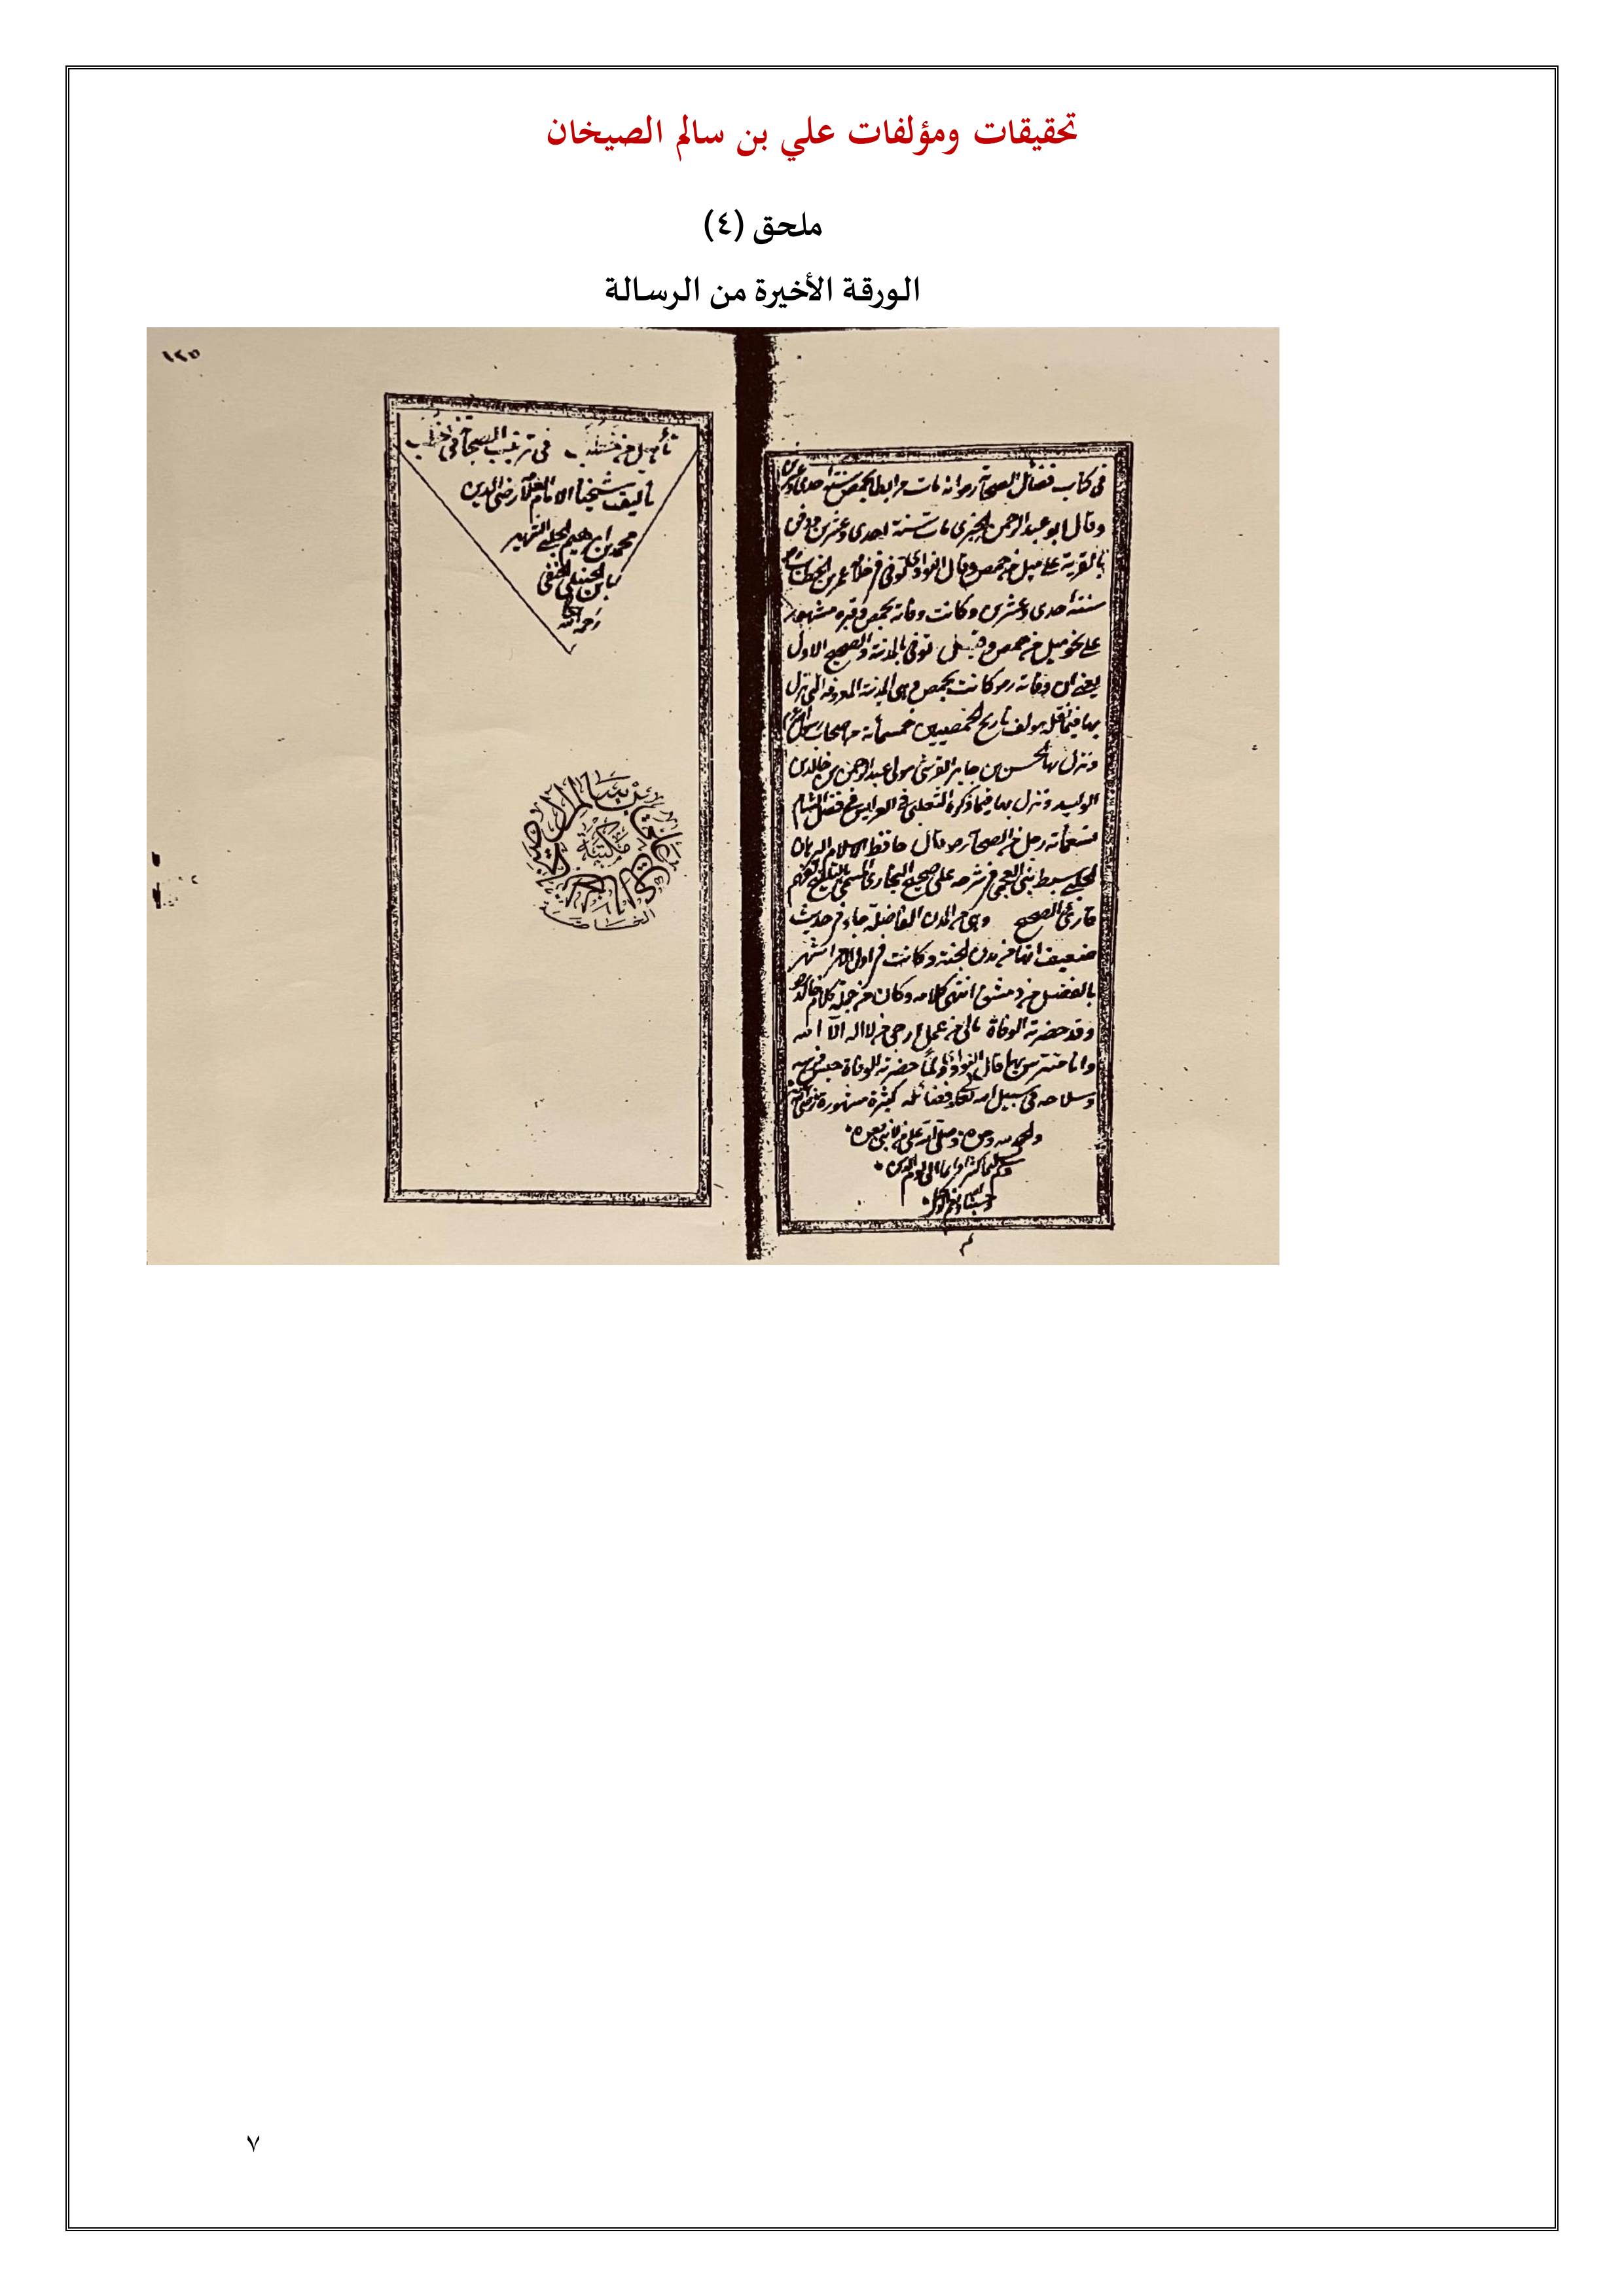 تحقيقات ومؤلفات علي بن سالم الصيخان
ملحق (٤)
الورقة الأخيرة من الرسالة
في كتاب فضائل الصحابة رضي الله عنهم انه مات مرابطا بحمص سنة احدى وعشرين
وقال ابو عبد الرحمن مات سنة احدى وعشرين ودفن
بالقرية على ميل من حمص وقال توفي في خلافة عمر بن الخطاب
سنة احدى وعشرين وكانت وفاته بحمص وقبره مشهور
على نحو ميل من حمص وقيل توفي بالمدينة والصحيح الاول
يعني ان وفاته كانت بحمص وهي المدينة المعروفة التي نزل
بها فيما نقله مولف تاريخ الحمصيين خمسمائة من اصحاب
ونزل بها الحسن بن جابر القرشي مولى عبد الرحمن بن خالد بن
الوليد ونزل بها فيما ذكره الثعلبي في العرايس في فضل الشام
تسعمائة رجل من الصحابة وقال حافظ الاسلام البرهان
الحلبي سبط بني العجمي في شرحه على صحيح البخاري المسمى بالتلقيح لفهم
قارئ الصحيح وهي من المدن الفاضلة جاء في حديث
ضعيف انها من مدن الجنة وكانت في اول الامر اشهر
بالفضل من دمشق انتهى كلامه وكان من جملة كلام خالد
وقد حضرته الوفاة مالي من عمل ارجى من لا اله الا الله
وانا متترس بها قال النواوي ولما حضرته الوفاة حبس فرسه
وسلاحه في سبيل الله تعالى وفضائله كثيرة مشهورة
والحمد لله وحده وصلى الله على من لا نبي بعده
وسلم تسليما كثيرا دائما الى يوم الدين
وحسبنا الله ونعم الوكيل
تم
١٢٥
في ترتيب الصحابة في
تأليف شيخنا الامام العلامة رضي الدين
محمد بن ابرهيم الحلبي الشهير
بابن الحنبلي الحنفي
رحمه الله
مكتبة
الخاصة
٧